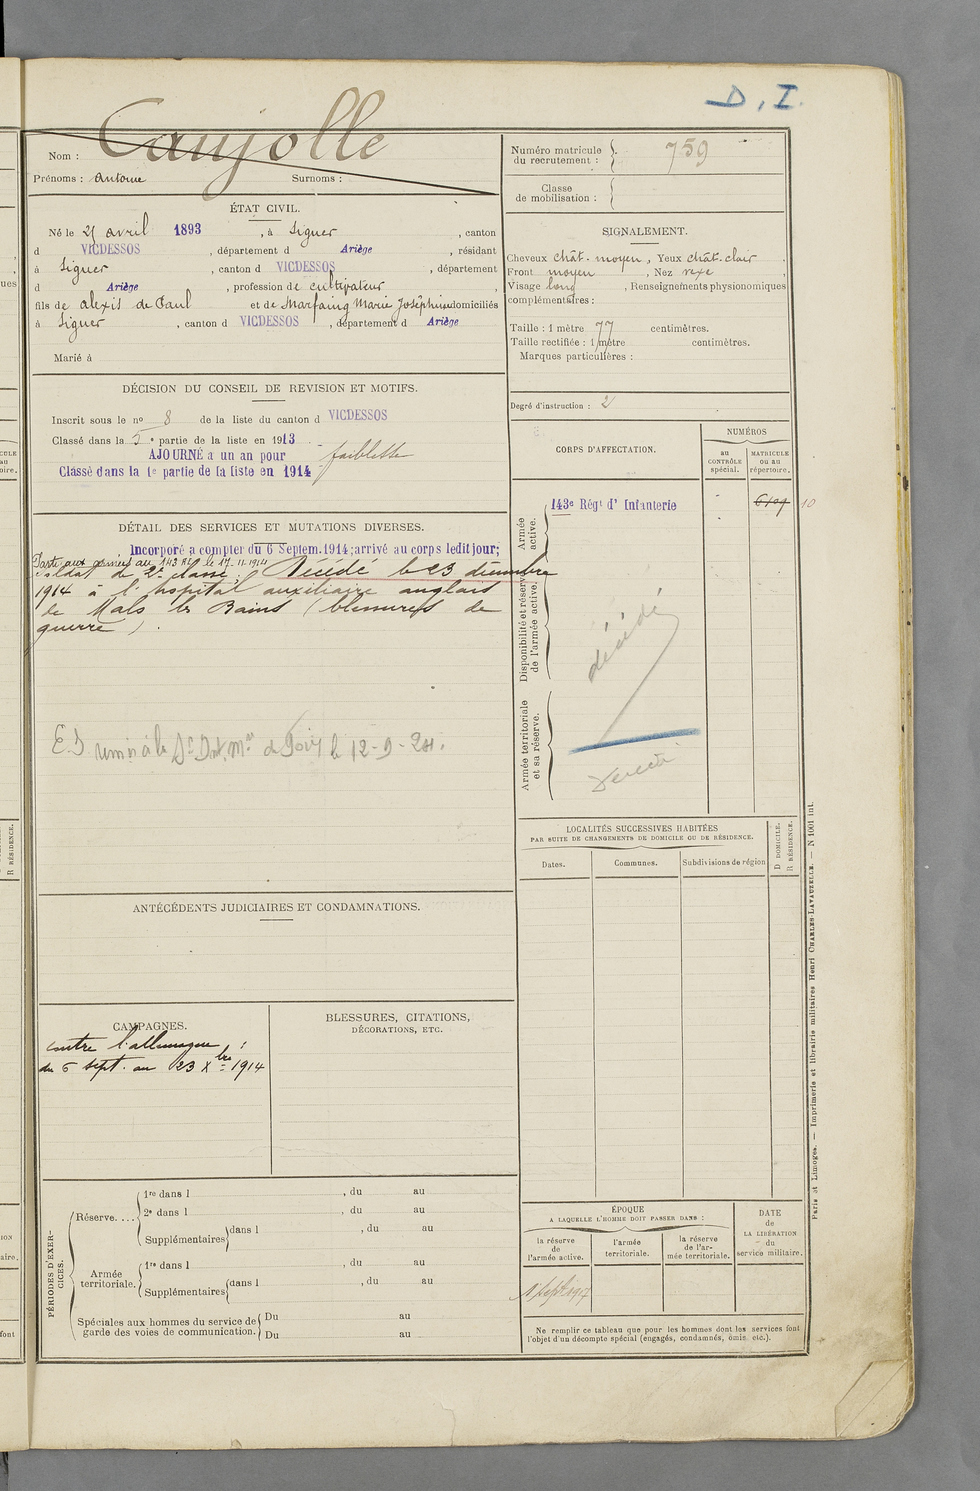 D. I.
Caujolle
Nom :
Prénoms : Antoine Surnoms :
Numéro matricule du recrutement : 759
Classe de mobilisation :
ÉTAT CIVIL.
Né le avril 1893, à Siguer, canton
d VICDESSOS, département d Ariège, résidant
à Siguer, canton d VICDESSOS, département
d Ariège, profession de cultivateur,
fils de Alexis de Paul et de Marfaing Marie Joséphine domiciliés
à Siguer, canton d VICDESSOS, département d Ariège
Marié à
SIGNALEMENT.
Cheveux chât. moyen, Yeux chât. clair
Front moyen, Nez vexe,
Visage long, Renseignements physionomiques
complémentaires :
Taille : 1 mètre 77 centimètres.
Taille rectifiée : 1 mètre centimètres.
Marques particulières :
Degré d'instruction : 2
DÉCISION DU CONSEIL DE REVISION ET MOTIFS.
Inscrit sous le no 8 de la liste du canton d VICDESSOS
Classé dans la 5e partie de la liste en 1913
AJOURNÉ à un an pour faiblesse
Classé dans la 1e partie de la liste en 1914
CORPS D'AFFECTATION.
NUMÉROS
au CONTRÔLE spécial.
MATRICULE ou au répertoire.
Armée active.
143e Régt d' Infanterie
10
Disponibilité et réserve de l'armée active.
décédé
Armée territoriale et sa réserve.
DÉTAIL DES SERVICES ET MUTATIONS DIVERSES.
Incorporé à compter du 6 Septem. 1914; arrivé au corps ledit jour;
Parti aux armées au 143 RI le 17-11-1914
soldat de 2e classe; Décédé le 23 décembre
1914 à l'hospital auxiliaire anglais
de Malo les Bains (blessures de
guerre).
LOCALITÉS SUCCESSIVES HABITÉES
PAR SUITE DE CHANGEMENTS DE DOMICILE OU DE RÉSIDENCE.
Dates. Communes. Subdivisions de région
D DOMICILE.
R RÉSIDENCE.
ANTÉCÉDENTS JUDICIAIRES ET CONDAMNATIONS.
CAMPAGNES.
contre l'allemagne;
du 6 sept. au 23 Xbre 1914
BLESSURES, CITATIONS,
DÉCORATIONS, ETC.
PÉRIODES D'EXERCICES.
Réserve....
1re dans l , du au
2e dans l , du au
Supplémentaires dans l , du au
Armée territoriale.
1re dans l , du au
Supplémentaires dans l , du au
Spéciales aux hommes du service de garde des voies de communication.
Du au
Du au
ÉPOQUE
A LAQUELLE L'HOMME DOIT PASSER DANS :
la réserve de l'armée active.
l'armée territoriale.
la réserve de l'armée territoriale.
DATE de LA LIBÉRATION du service militaire.
Sept 1917
Ne remplir ce tableau que pour les hommes dont les services font
l'objet d'un décompte spécial (engagés, condamnés, omis, etc.).
Paris et Limoges. — Imprimerie et librairie militaires Henri CHARLES-LAVAUZELLE. — N 1001 int.